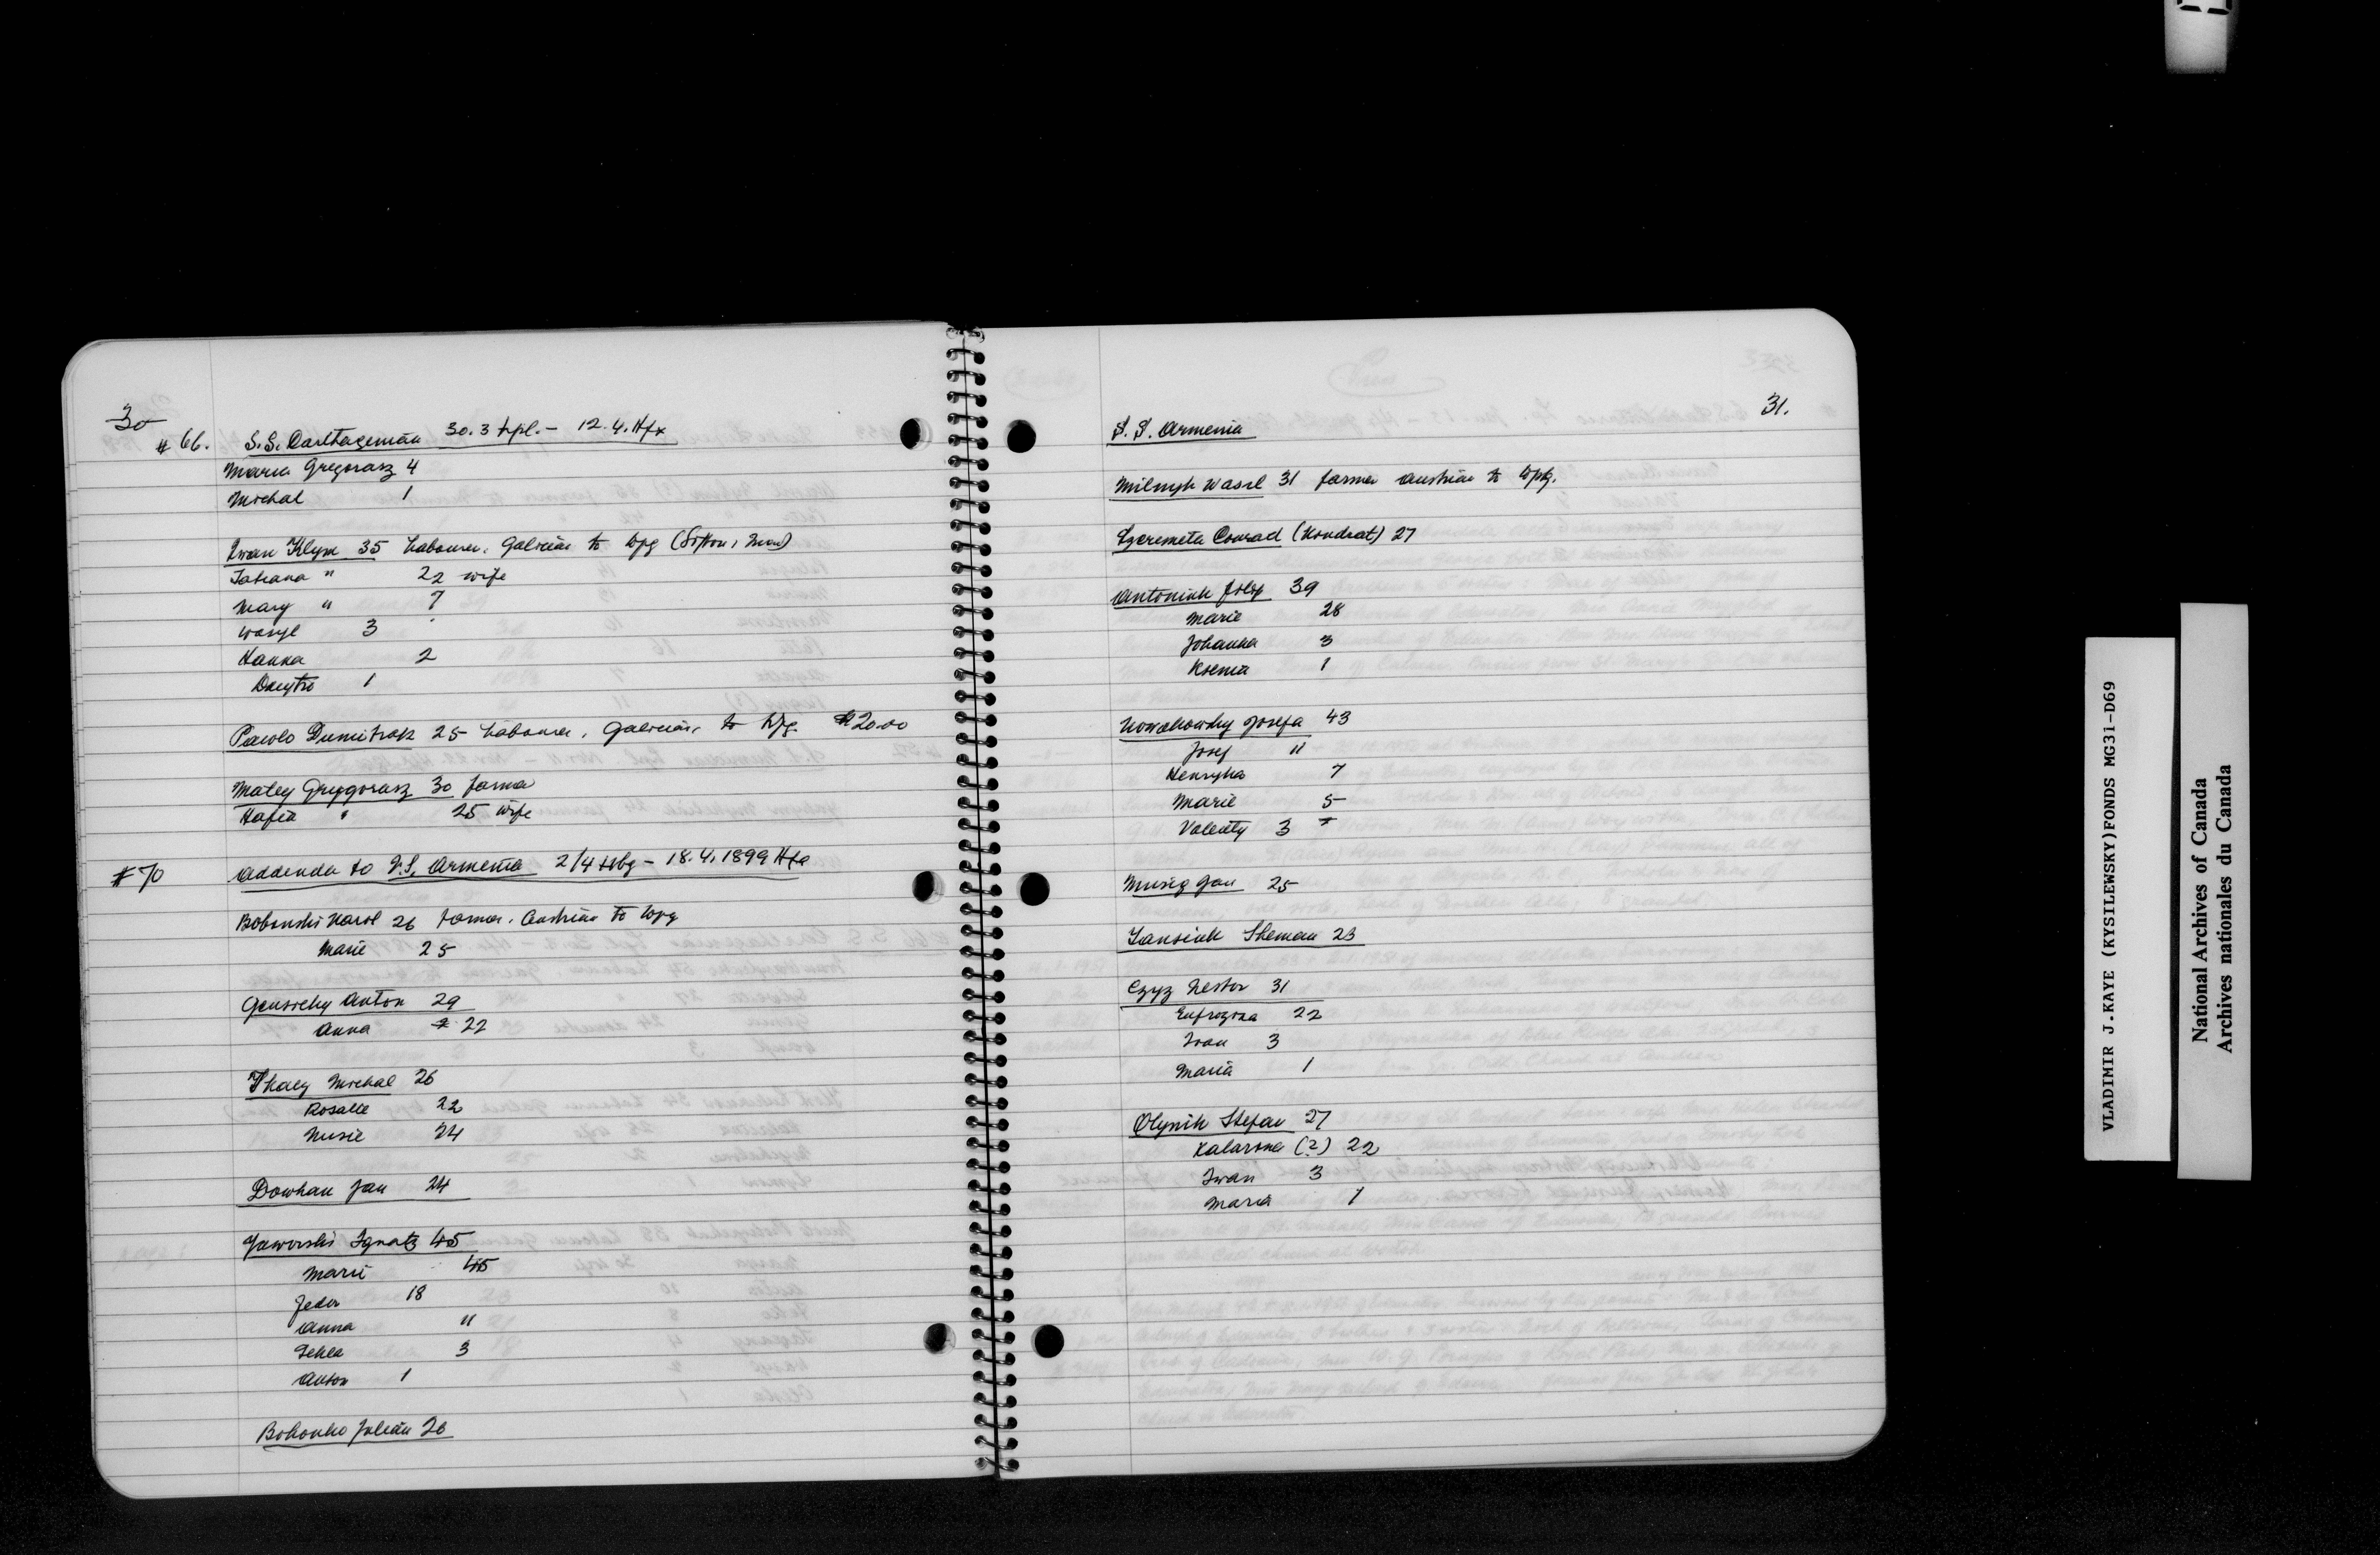 30
# 66. S.S. Carthagenian 30.3 Lpl. - 12.4. Hfx
Maria Gregorasz 4
Michal 1
Iwan Klym 35 Labourer, Galician to Wpg (Sifton, Man)
Tatiana " 22 wife
Mary " 7
Wasyl 3
Hanka 2
Dmytro 1
Pawlo Dumitrak 25 Labourer, Galician, to Wpg. $20.00
Matey Grygorasz 30 farmer
Hafia " 25 wife
# 70 Addenda to S.S. Armenia 2/4 Hbg - 18.4.1899 Hfx
Bobonski Karol 26 farmer, Austrian to Wpg
Marie 25
Anton 29
Anna 22
Tkacz Michal 26
Rosalie 22
Nusie 24
Dowhan Jan 24
Jaworski Ignatz 45
Marie 45
Fedor 18
Anna 11
Tekla 3
Anton 1
Bohonko Julian 26
31.
S.S. Armenia
Milnyk Wasil 31 farmer Austrian to Wpg.
Szeremeta Conrad (Kondrat) 27
Antoniuk Josef 39
Marie 28
Johanna 3
Ksenia 1
Nowakowsky Josefa 43
Josef 11
Henryka 7
Marie 5
Valenty 3
Jan 25
23
Czyz Nestor 31
Eufrozina 22
Ivan 3
Maria 1
Olynik Stefan 27
Katarona (?) 22
Iwan 3
Maria 1
VLADIMIR J.KAYE (KYSILEWSKY)FONDS MG31-D69
National Archives of Canada
Archives nationales du Canada